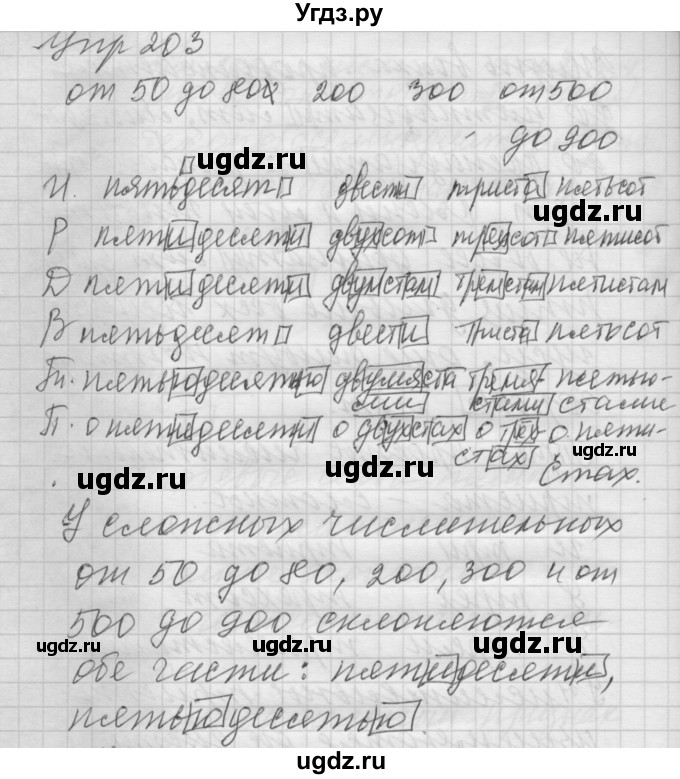 Угдз.ру
Упр 203
от 50 до 80 200 300 от 500
до 900
ugdz.ru
ugdz.ru
И. пятьдесят двести триста пятьсот
Р пятидесяти двухсот трехсот пятисот
Д пятидесяти двумстам тремстам пятистам
В пятьдесят двести триста пятьсот
Тв. пятьюдесятью двумяста тремя- пятью-
ми стами стами
П. о пятидесяти о двухстах о трех- о пяти-
стах стах.
ugdz.ru
ugdz.ru
У сложных числительных
от 50 до 80, 200, 300 и от
500 до 900 склоняются
ugdz.ru ugdz.ru ugdz.ru
обе части: пятидесяти,
пятьюдесятью.
ugdz.ru